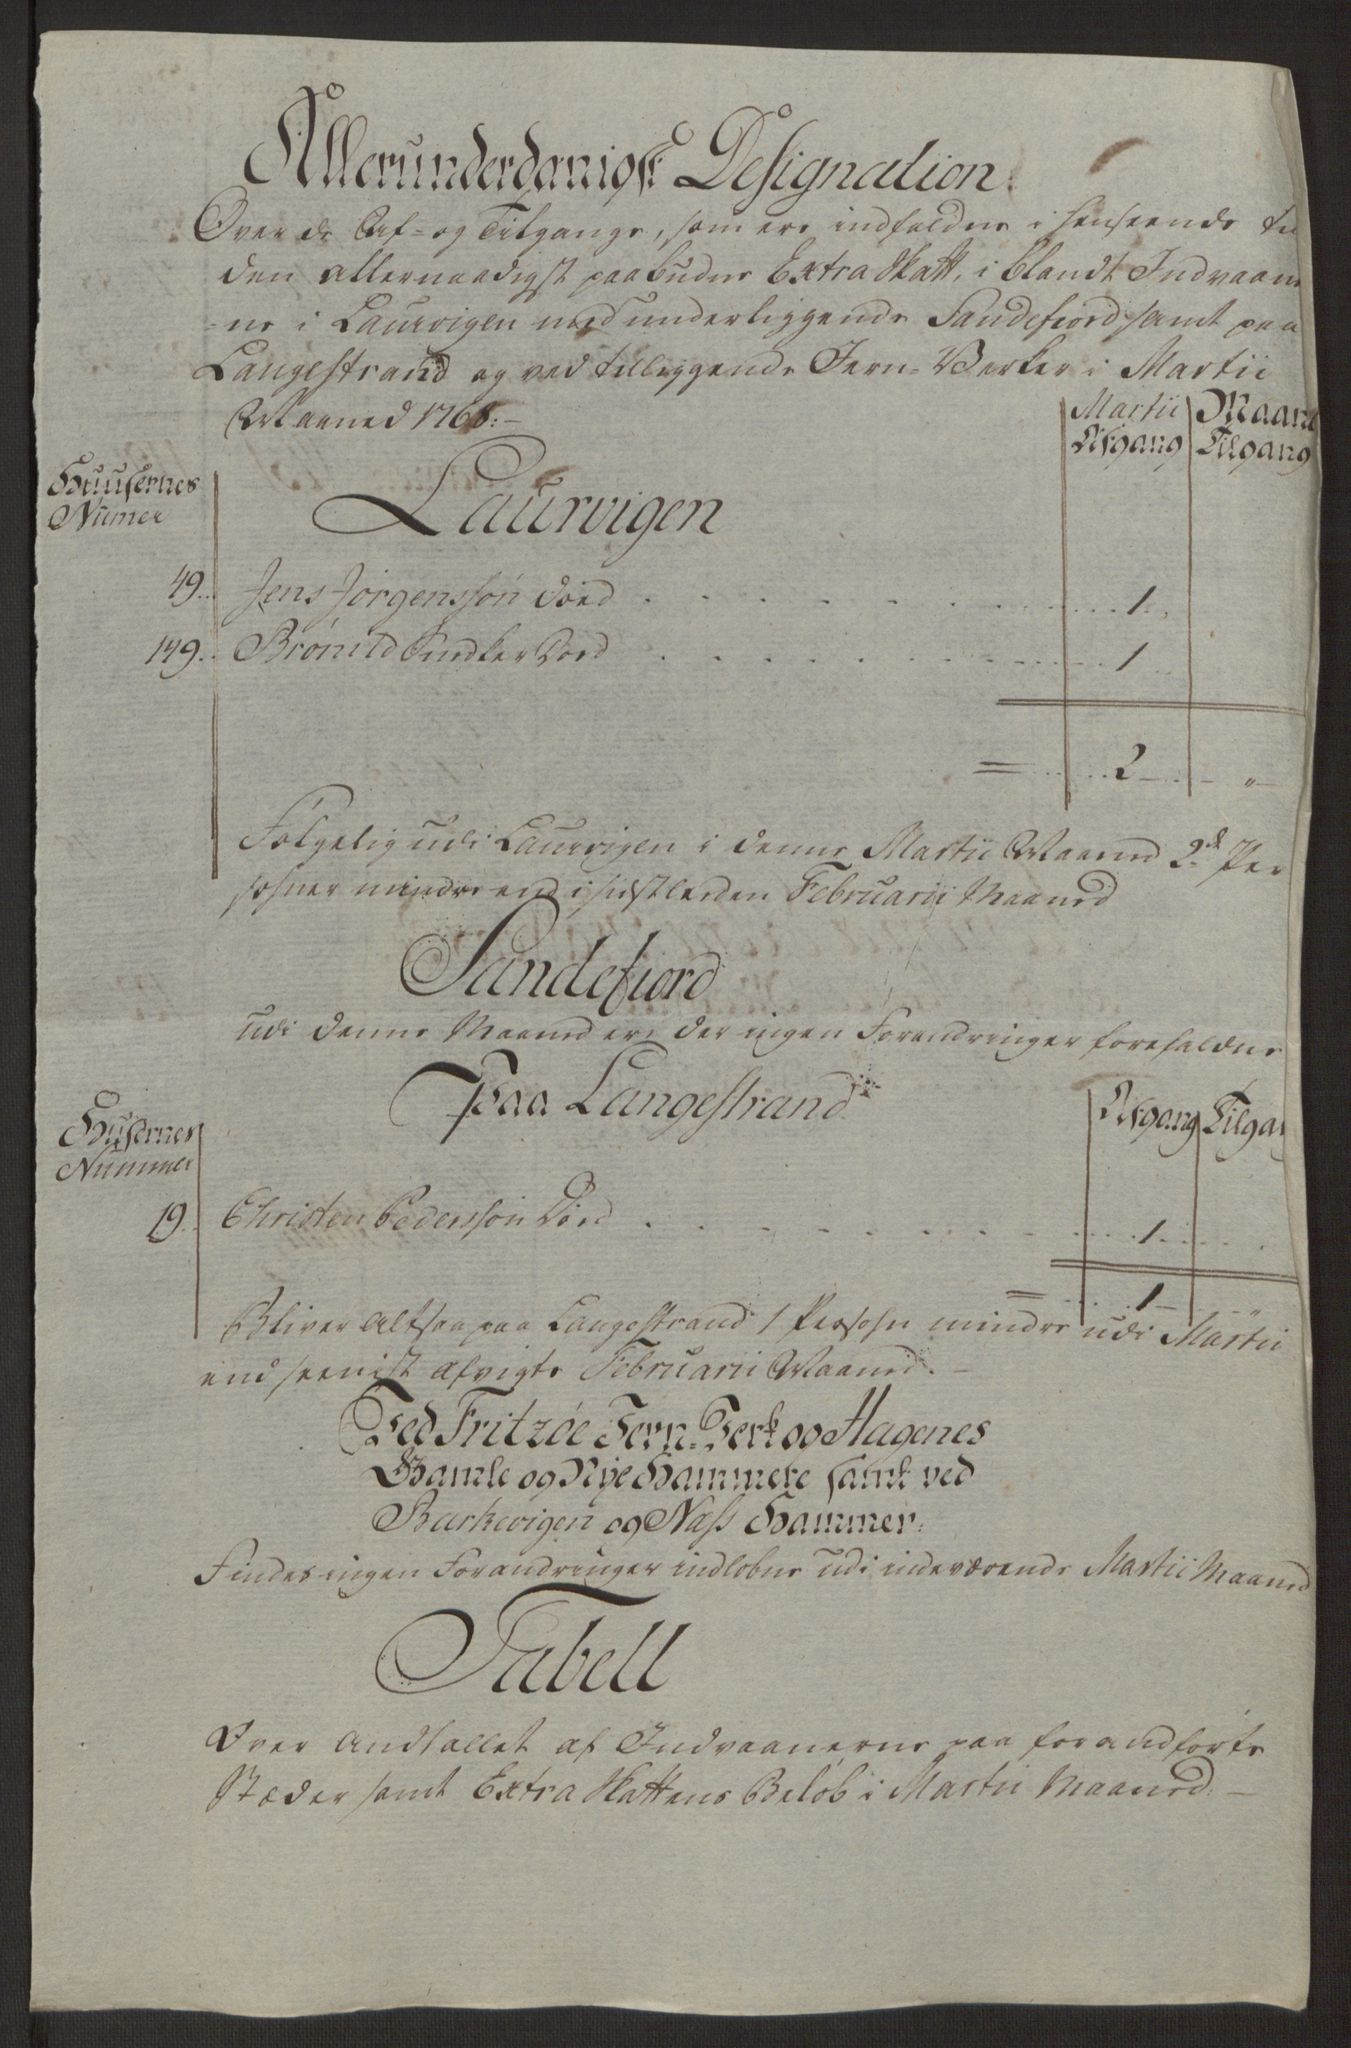 Allerunderdanigst Designation.
Over de Af- og Tilgange, som ere indfaldne i henseende til
den allernaadigst paabudne Extra Skatt, i blandt Indvaaner
-ne i Laurvigen med underliggende Sandefiord samt paa
Langestrand og ved tilliggende Jern-Verker i Martii
Maaned 1768.-
Martii Maaned
Afgang Tilgang
Huusernes
Numer
Laurvigen
49. Jens Jørgenssøn død 1
149. Brønild død 1
= 2 "
Følgelig udi Laurvigen i denne Martii Maaned 2de Per
sohner mindre end i sidstleeden Februarii Maaned
Sandefiord
udi denne Maaned ere der ingen Forandringer forefaldne
Paa Langestrand
Afgang Tilgang
Husernes
Nummer
19. Christen Pederssøn Død 1
= 1 "
Bliver altsaa paa Langestrand 1 Persohn mindre udi Martii
end seenist afvigte Februarii Maaned.-
Ved Fritzöe Jern-Verk og Hagenes
Gamle og Nye Hammere samt ved
Barkevigen og Næss Hammer.
Findes ingen Forandringer indlobne udi indeværende Martii Maaned
Tabell
Over Andtallet af Indvaanerne paa foranførte
Stæder samt Extra Skattens Beløb i Martii Maaned.-